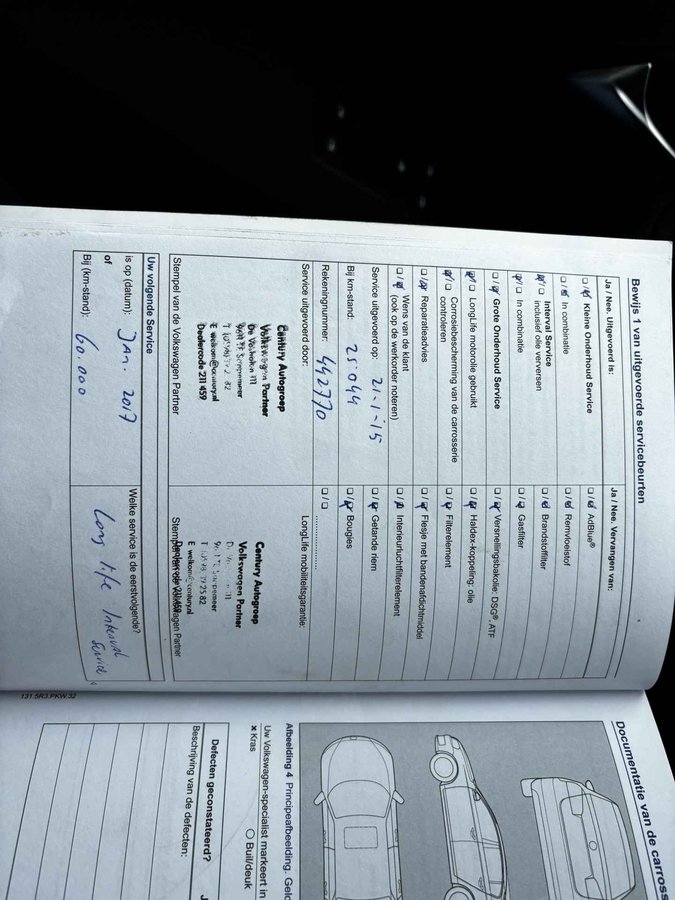 Bewijs 1 van uitgevoerde servicebeurten
Ja / Nee. Uitgevoerd is:
Kleine Onderhoud Service
In combinatie
Interval Service
inclusief olie verversen
In combinatie
Grote Onderhoud Service
LongLife motorolie gebruikt
Corrosiebescherming van de carrosserie
controleren
Reparatieadvies
Wens van de klant
(ook op de werkorder noteren)
Service uitgevoerd op: 21-1-15
Bij km-stand: 25.044
Rekeningnummer: 442770
Service uitgevoerd door:
Century Autogroep
Volkswagen Partner
E welkom@century.nl
Dealercode 211 459
Stempel van de Volkswagen Partner
Ja / Nee. Vervangen van:
AdBlue®
Remvloeistof
Brandstoffilter
Gasfilter
Versnellingsbakolie: DSG®, ATF
Haldex-koppeling: olie
Filterelement
Flesje met bandenafdichtmiddel
Interieurluchtfilterelement
Getande riem
Bougies
LongLife mobiliteitsgarantie:
Century Autogroep
Volkswagen Partner
E welkom@century.nl
Stempel van de Volkswagen Partner
Uw volgende Service
is op (datum): Jan. 2017
of
Bij (km-stand): 60.000
Welke service is de eerstvolgende?
Long life Interval
Service
131.5R3.PKW.32
Documentatie van de carross
Afbeelding 4 Principeafbeelding. Geld
Uw Volkswagen-specialist markeert in
× Kras
Buil/deuk
Defecten geconstateerd?
Beschrijving van de defecten: